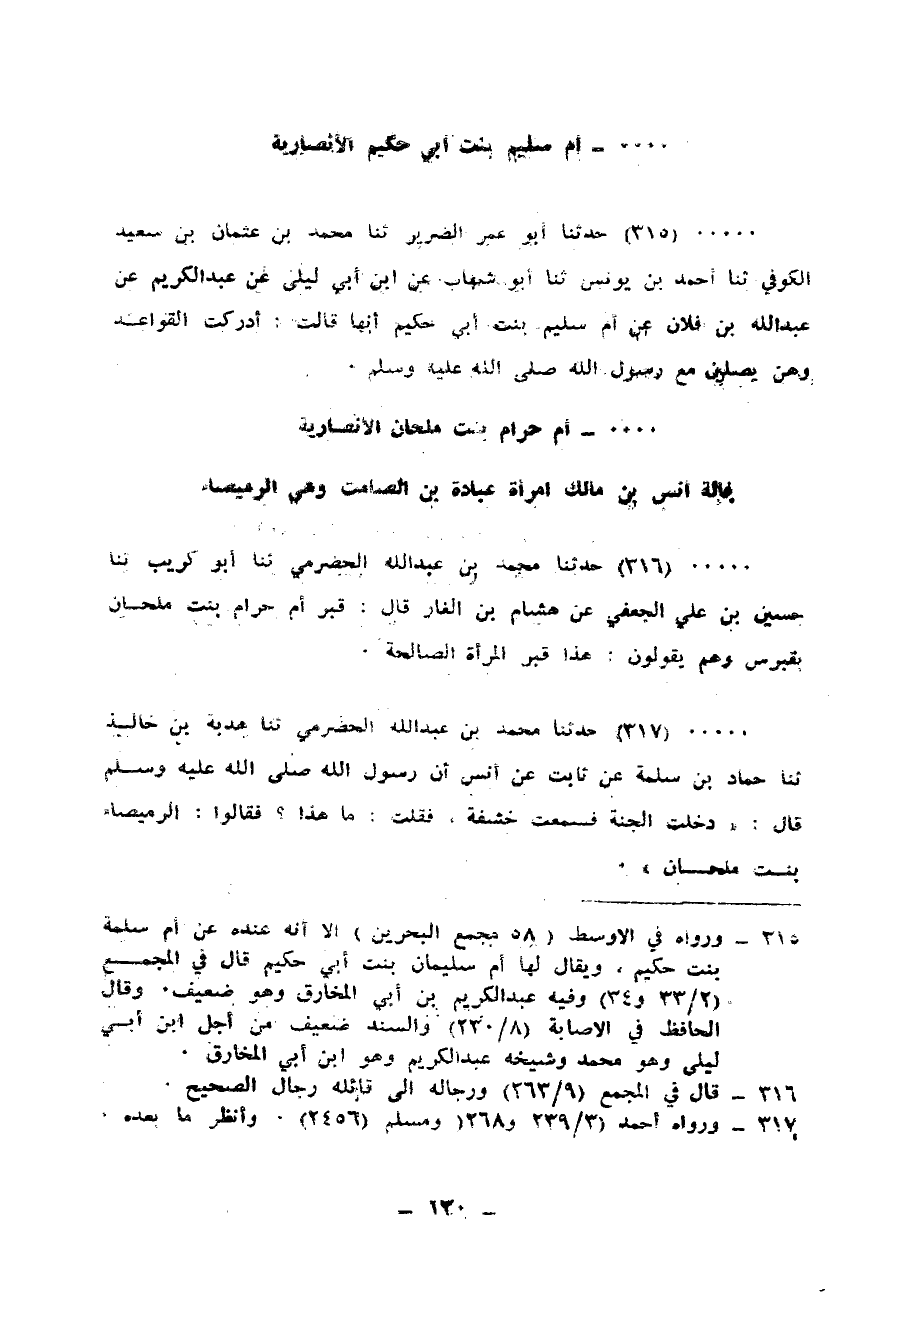 ٠٠٠٠ ــ أم سليم بنت أبي حكيم الأنصارية
٠٠٠٠٠ (٣١٥) حدثنا أبو عمر الضرير ثنا محمد بن عثمان بن سعيد
الكوفي ثنا أحمد بن يونس ثنا أبو شهاب عن ابن أبي ليلى عن عبدالكريم عن
عبدالله بن فلان عن أم سليم بنت أبي حكيم أنها قالت : أدركت القواعد
وهن يصلين مع رسول الله صلى الله عليه وسلم ٠
٠٠٠٠ ــ أم حرام بنت ملحان الأنصارية
خالة أنس بن مالك امرأة عبادة بن الصامت وهي الرميصاء
٠٠٠٠٠ (٣١٦) حدثنا محمد بن عبدالله الحضرمي ثنا أبو كريب ثنا
حسين بن علي الجعفي عن هشام بن الغاز قال : قبر أم حرام بنت ملحان
بقبرس وهم يقولون : هذا قبر المرأة الصالحة ٠
٠٠٠٠٠ (٣١٧) حدثنا محمد بن عبدالله الحضرمي ثنا هدبة بن خالد
ثنا حماد بن سلمة عن ثابت عن أنس أن رسول الله صلى الله عليه وسلم
قال : « دخلت الجنة فسمعت خشفة ، فقلت : ما هذا ؟ فقالوا : الرميصاء
بنت ملحان » ٠
٣١٥ ــ ورواه في الاوسط ( ٥٨ مجمع البحرين ) الا أنه عنده عن أم سلمة
بنت حكيم ، ويقال لها أم سليمان بنت أبي حكيم قال في المجمع
(٣٣/٢ و٣٤) وفيه عبدالكريم بن أبي المخارق وهو ضعيف٠ وقال
الحافظ في الاصابة (٢٣٠/٨) والسند ضعيف من أجل ابن أبي
ليلى وهو محمد وشيخه عبدالكريم وهو ابن أبي المخارق ٠
٣١٦ ــ قال في المجمع (٢٦٣/٩) ورجاله الى قائله رجال الصحيح ٠
٣١٧ ــ ورواه أحمد (٢٣٩/٣ و٢٦٨( ومسلم (٢٤٥٦) ٠ وأنظر ما بعده ٠
ــ ١٣٠ ــ